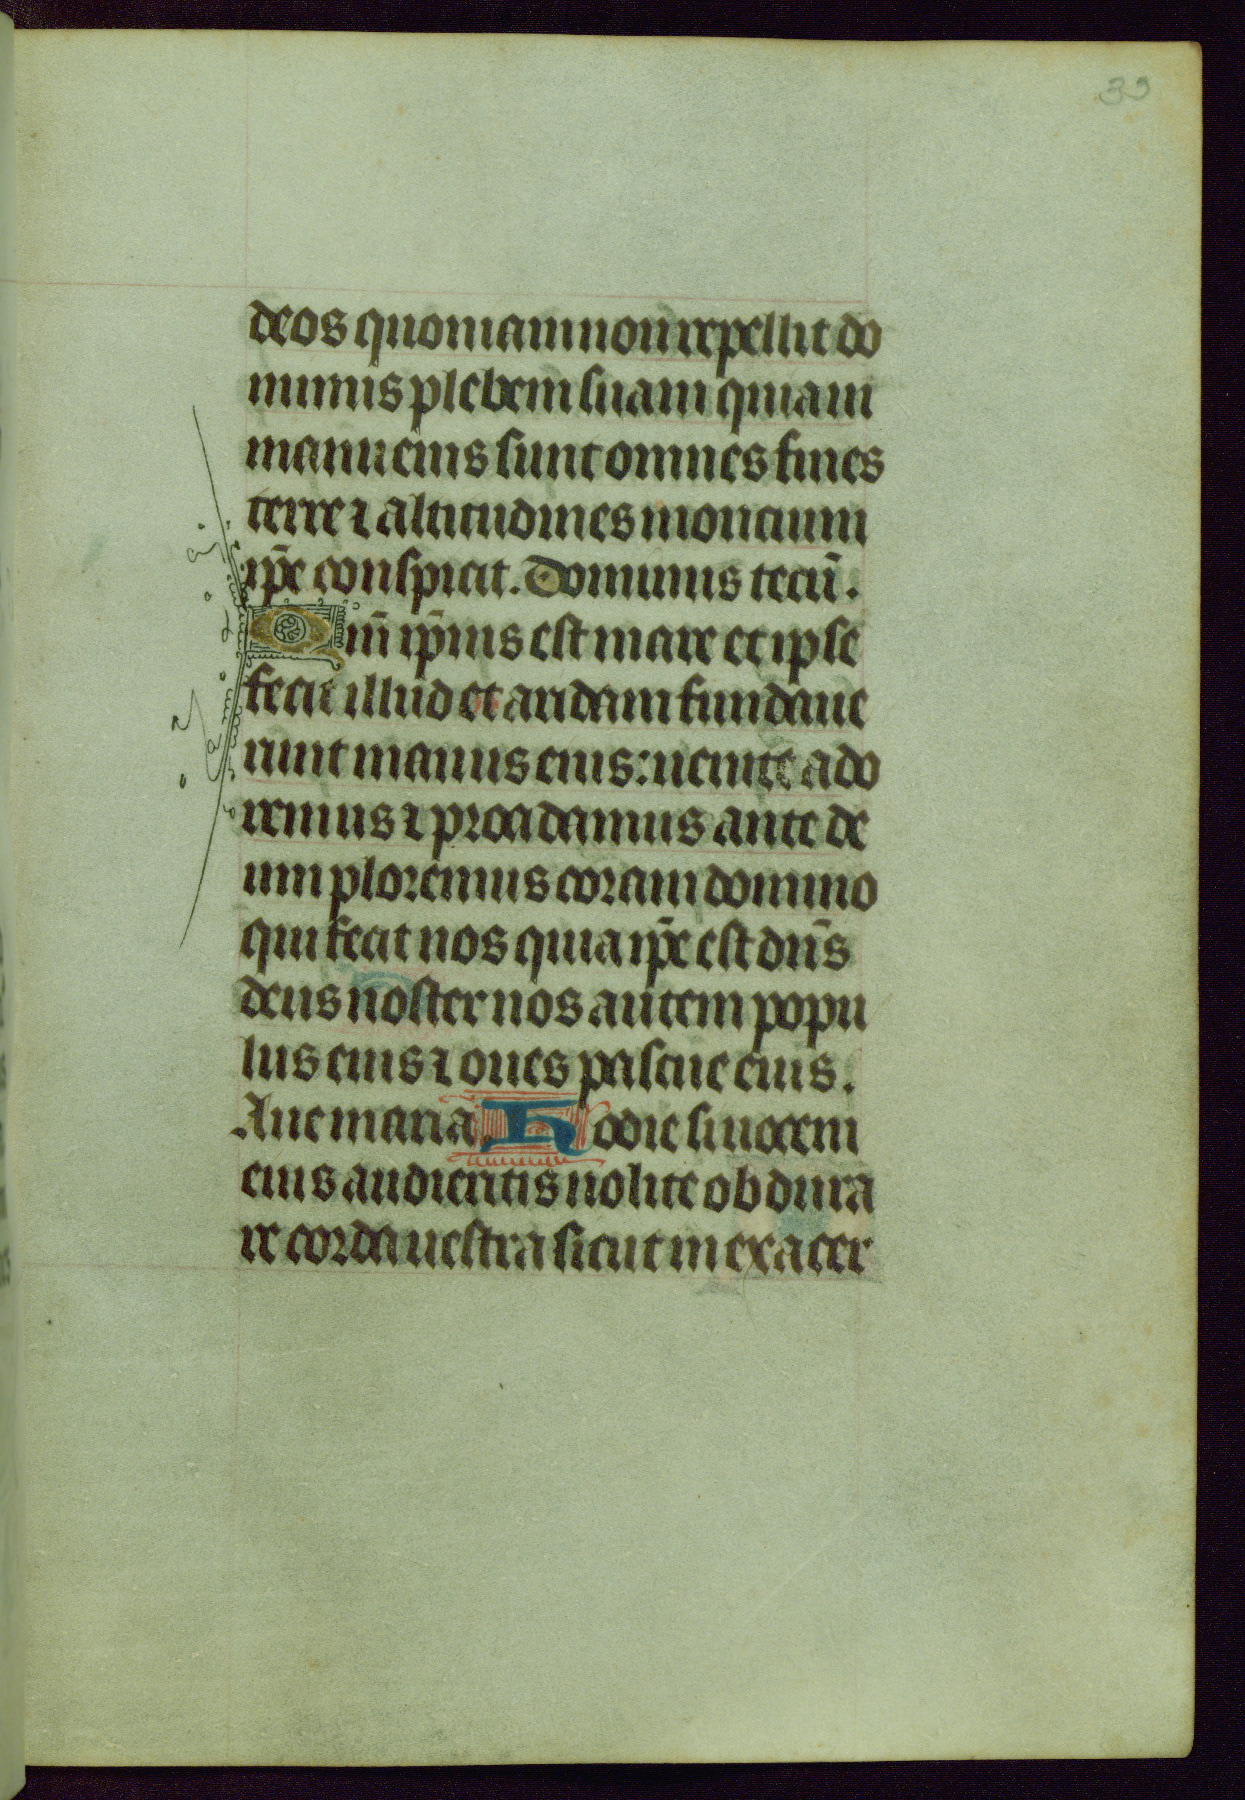 39
deos quoniam non repellit do
minus plebem suam quia in
manu eius sunt omnes fines
terre ⁊ altitudines moncium
ip̄e conspicit. Dominus tecū.
Qm̄ ip̄ius est mare et ipse
fecit illud et aridam fundaue
runt manus eius: uenite ado
remus ⁊ procidamus ante de
um ploremus coram domino
qui fecit nos quia ip̄e est dn̄s
deus noster nos autem popu
lus eius ⁊ oues pascue eius.
Aue maria. Hodie si uocem
eius audieritis nolite obdura
re corda uestra sicut in exacer